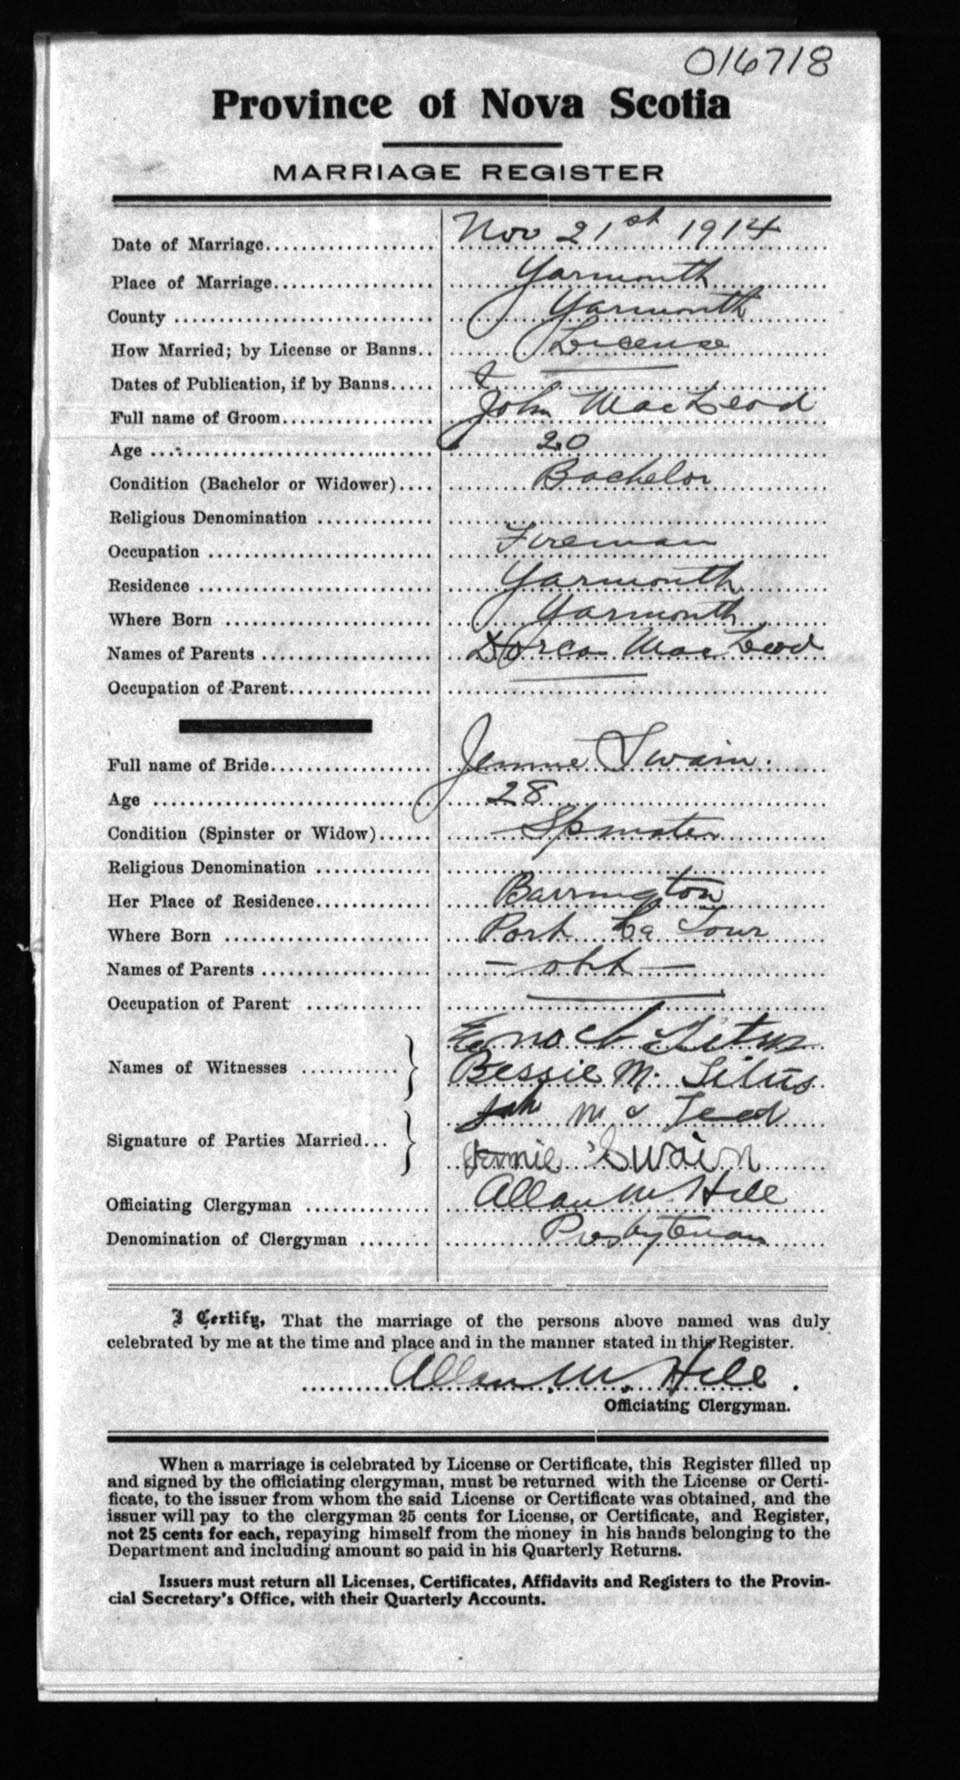 016718
Province of Nova Scotia
MARRIAGE REGISTER
Date of Marriage Nov 21st 1914
Place of Marriage Yarmouth
County Yarmouth
How Married; by License or Banns License
Dates of Publication, if by Banns
Full name of Groom John MacLeod
Age 20
Condition (Bachelor or Widower) Bachelor
Religious Denomination
Occupation Fireman
Residence Yarmouth
Where Born Yarmouth
Names of Parents MacLeod
Occupation of Parent
Full name of Bride Jennie Swain.
Age 28
Condition (Spinster or Widow) Spinster
Religious Denomination
Her Place of Residence Barrington
Where Born Port La Tour
Names of Parents
Occupation of Parent
Enoch Titus
Names of Witnesses
Bessie M. Titus
Signature of Parties Married
Jennie Swain
Officiating Clergyman Allan M. Hill
Denomination of Clergyman Presbyterian
I Certify, That the marriage of the persons above named was duly
celebrated by me at the time and place and in the manner stated in this Register.
Allan M. Hill.
Officiating Clergyman.
When a marriage is celebrated by License or Certificate, this Register filled up
and signed by the officiating clergyman, must be returned with the License or Certi-
ficate, to the issuer from whom the said License or Certificate was obtained, and the
issuer will pay to the clergyman 25 cents for License, or Certificate, and Register,
not 25 cents for each, repaying himself from the money in his hands belonging to the
Department and including amount so paid in his Quarterly Returns.
Issuers must return all Licenses, Certificates, Affidavits and Registers to the Provin-
cial Secretary's Office, with their Quarterly Accounts.